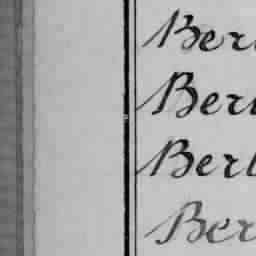 Ber
Ber
Berl
Ber